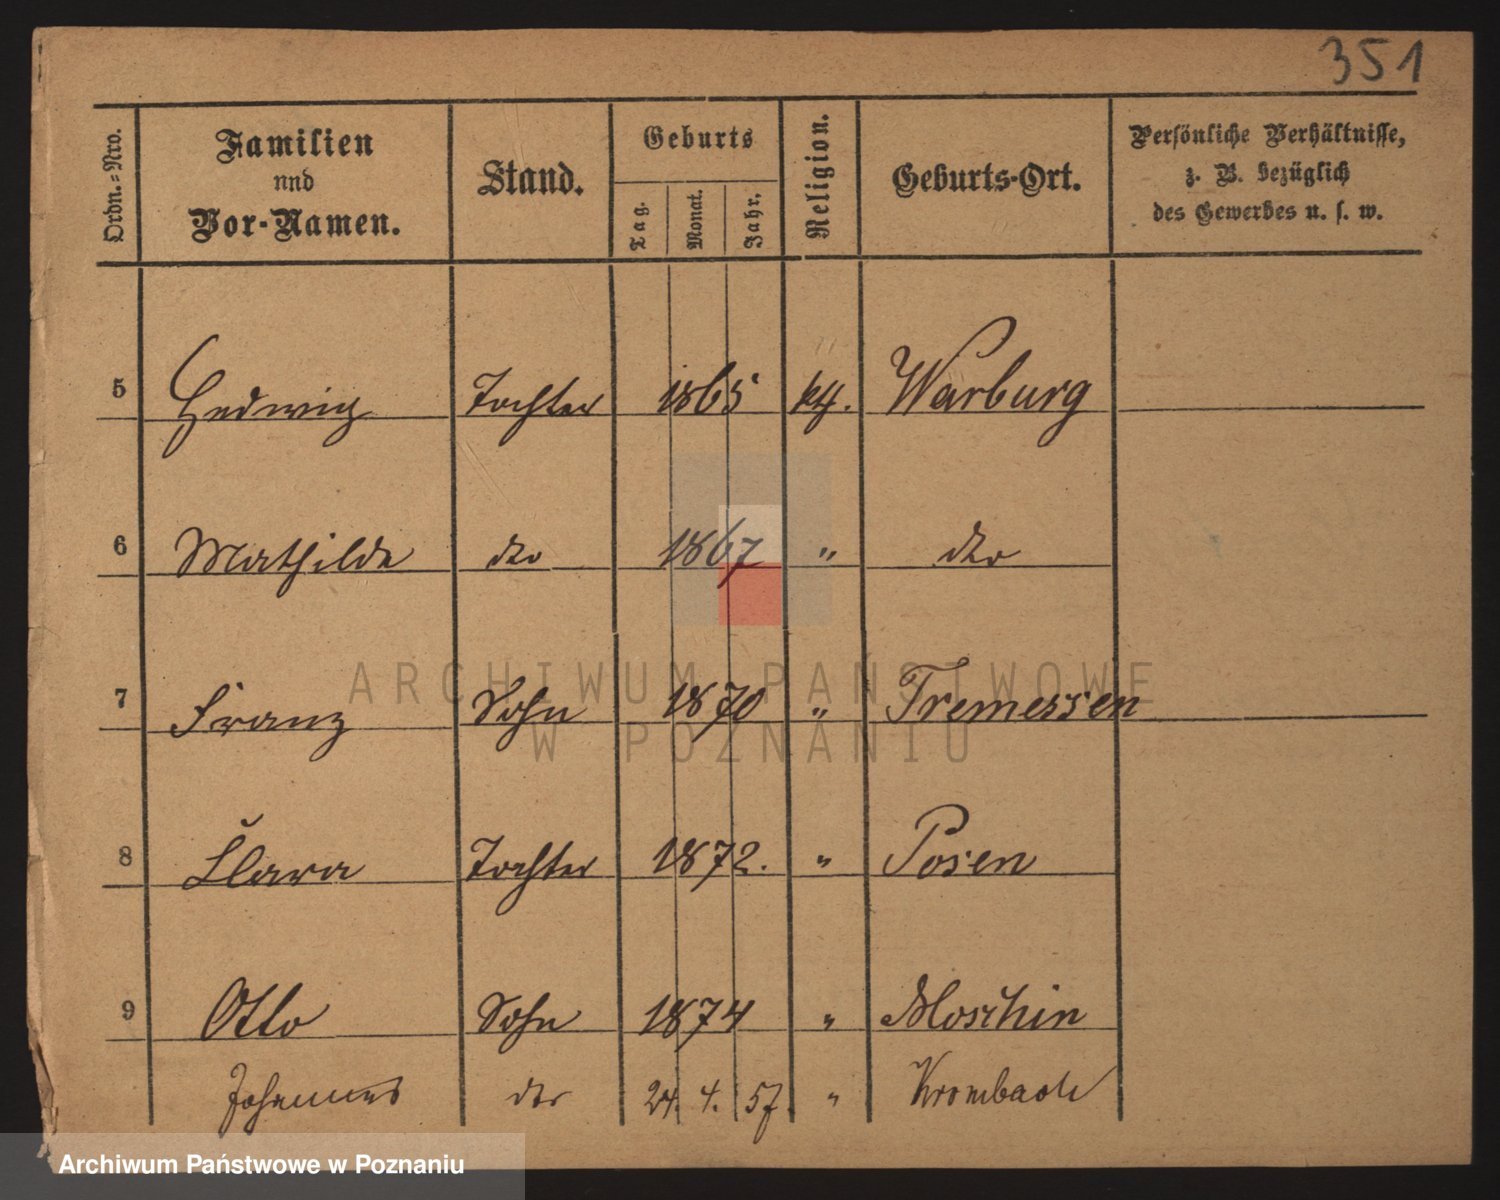 351
Ordn.-Nro.
Familien
und
Vor-Namen.
Stand.
Geburts
Tag.
Monat.
Jahr.
Religion.
Geburts-Ort.
Persönliche Verhältnisse,
z. B. bezüglich
des Gewerbes u. s. w.
5 Hedwig Tochter 1865 kg. Warburg
6 Mathilde dto 1867 " dto
7 Franz Sohn 1870 " Tremessen
8 Clara Tochter 1872. " Posen
9 Otto Sohn 1874 " Moschin
Johannes dto 24. 4. 57 " Krombach
ARCHIWUM PAŃSTWOWE
W POZNANIU
Archiwum Państwowe w Poznaniu